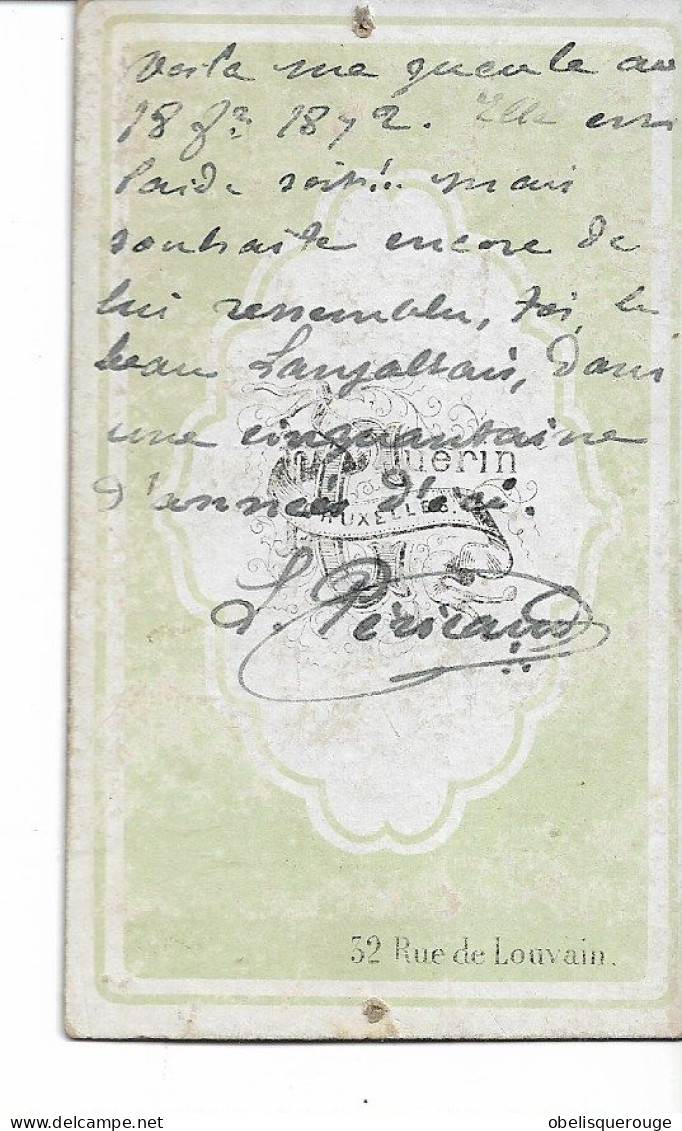 Voila ma gueule au
18 fr 1872. Elle est
laide soit!.. mais
souhaite encore de
lui ressembler, toi, le
beau Langallais, dans
une cinquantaine
d'années d'ici.
Guérin
BRUXELLES.
L. Péricaud
32 Rue de Louvain.
delcampe.net
obelisquerouge